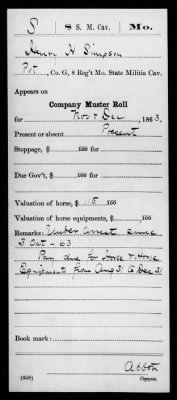 S 8 S. M. Cav. Mo.
Henry H Simpson
Pvt, Co. G, 8 Reg't Mo. State Militia Cav.
Appears on
Company Muster Roll
for Nov & Dec, 1863.
Present or absent Present
Stoppage, $ 100 for
Due Gov't, $ 100 for
Valuation of horse, $ 115 100
Valuation of horse equipments, $ 100
Remarks: Under arrest since
3 Oct - 63
Pay due for Horse & Horse
Equipments from Aug 31 to Dec 31
Book mark:
Abbott
(358) Copyist.